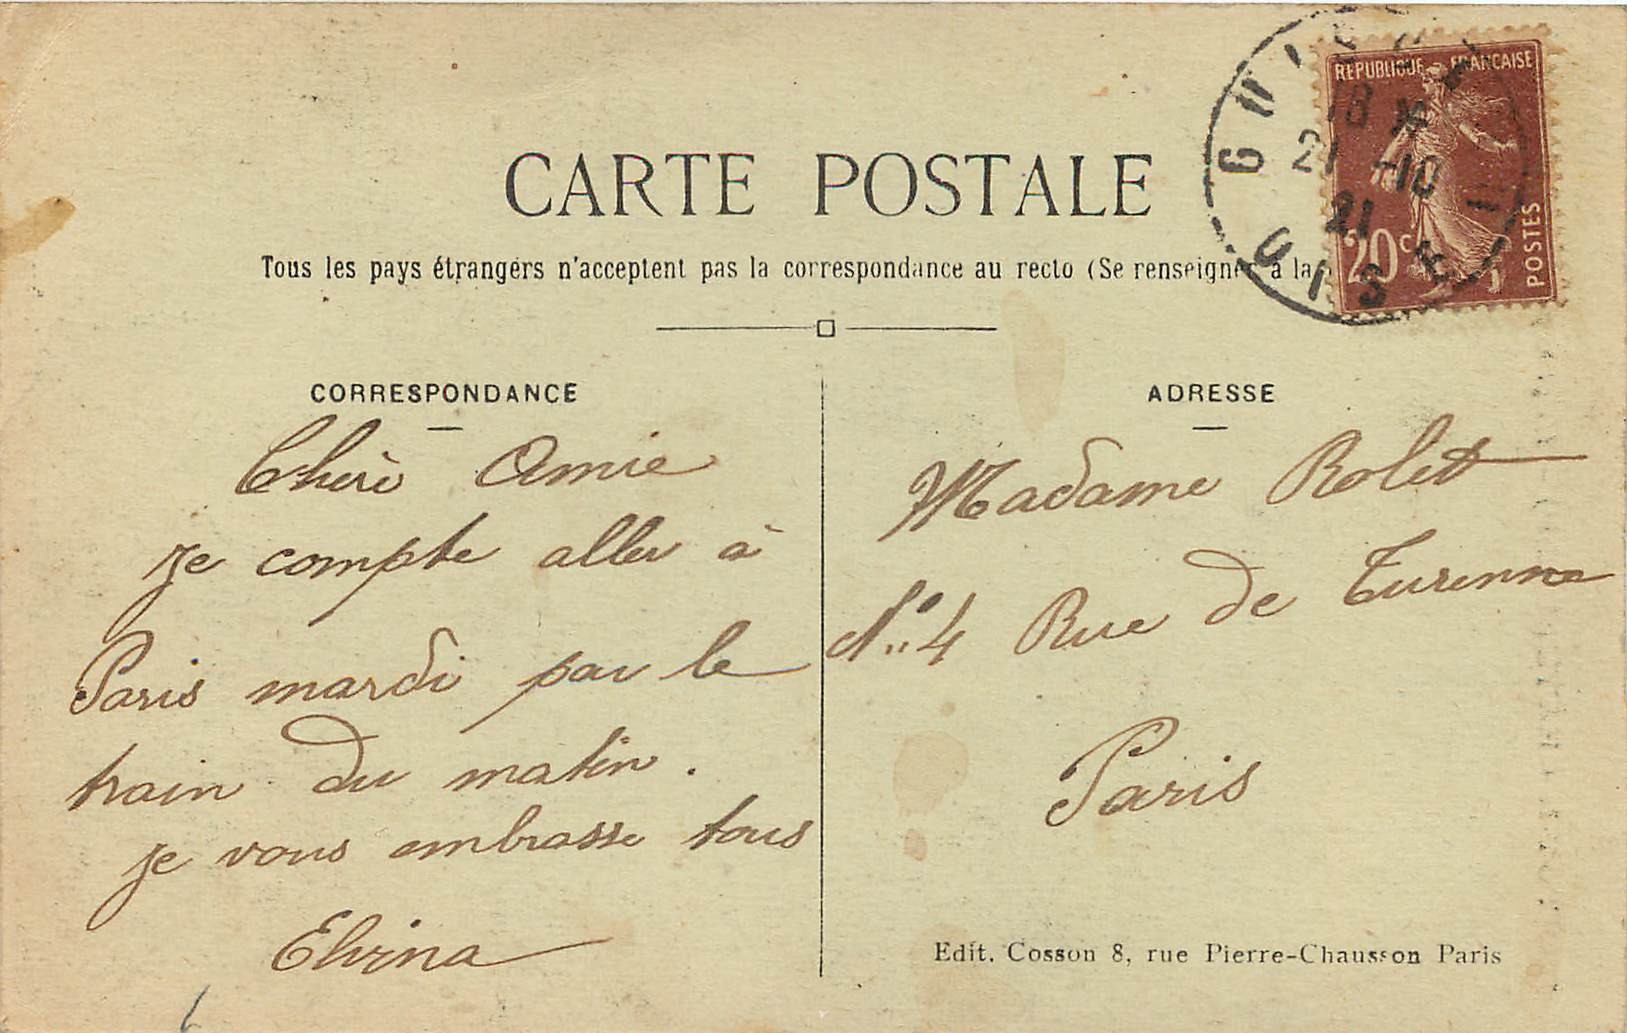 CARTE POSTALE
Tous les pays étrangers n'acceptent pas la correspondance au recto (Se renseigner à la
RÉPUBLIQUE FRANÇAISE
20c
POSTES
18
21 -10
21
OISE
CORRESPONDANCE
Chère Amie
je compte aller à
Paris mardi par le
train du matin.
je vous embrasse tous
Elvina
ADRESSE
Madame Rolet
No 4 Rue de Turenne
Paris
Edit. Cosson 8, rue Pierre-Chausson Paris